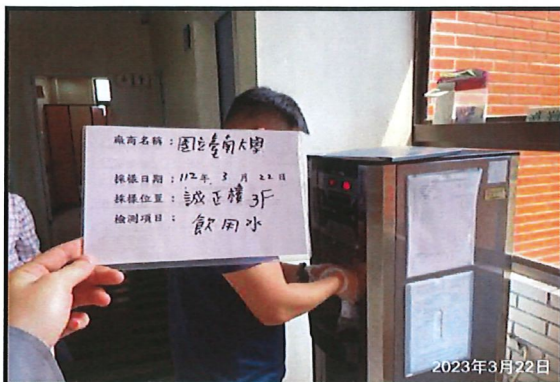 廠商名稱：國立臺南大學
採樣日期：112年 3 月 22 日
採樣位置：誠正樓 3F
檢測項目：飲用水
2023年3月22日